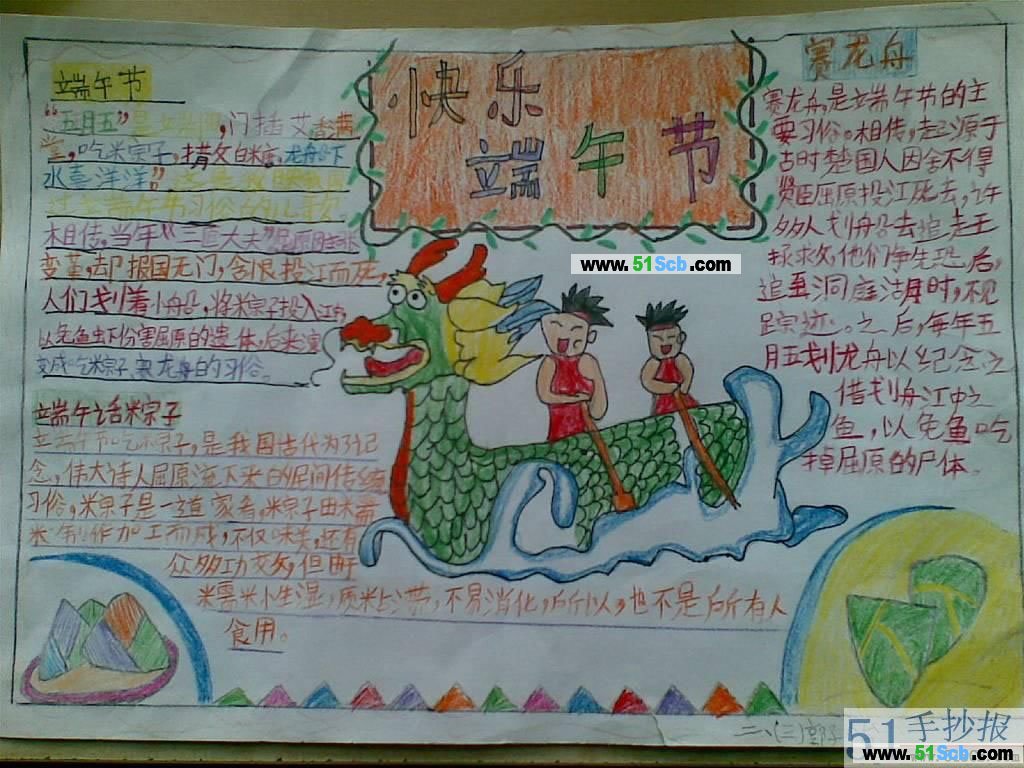 快乐
端午节
www.51Scb.com
端午节
"五月五"是端阳,门插艾,香满
堂,吃粽子,撒白糖,龙船下
水喜洋洋"
过端午节习俗的儿歌
相传,当年"三闾大夫"屈原因主张
变革,却报国无门,含恨投江而死,
人们划着小船,将粽子投入江中,
以免鱼虾伤害屈原的遗体,后来演
变成吃粽子,赛龙舟的习俗。
端午话粽子
端午节吃粽子,是我国古代为了纪
念,伟大诗人屈原流下来的民间传统
习俗,粽子是一道家肴,粽子由糯
米制作加工而成,不仅味美,还有
众多功效,但由于
糯米小生湿,质粘滞,不易消化,所以,也不是所有人
食用。
赛龙舟
赛龙舟,是端午节的主
要习俗。相传,起源于
古时楚国人因舍不得
贤臣屈原投江死去,许
多人划船去追赶
拯救,他们争先恐后,
追至洞庭湖时,不见
踪迹。之后,每年五
月五划龙舟以纪念之
借划舟江中之
鱼,以免鱼吃
掉屈原的尸体。
三、(三)郭
51手抄报
www.51Scb.com